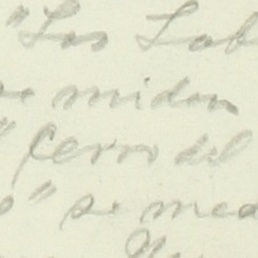 "Los Lab
se midan
" Cerro del
o" se med